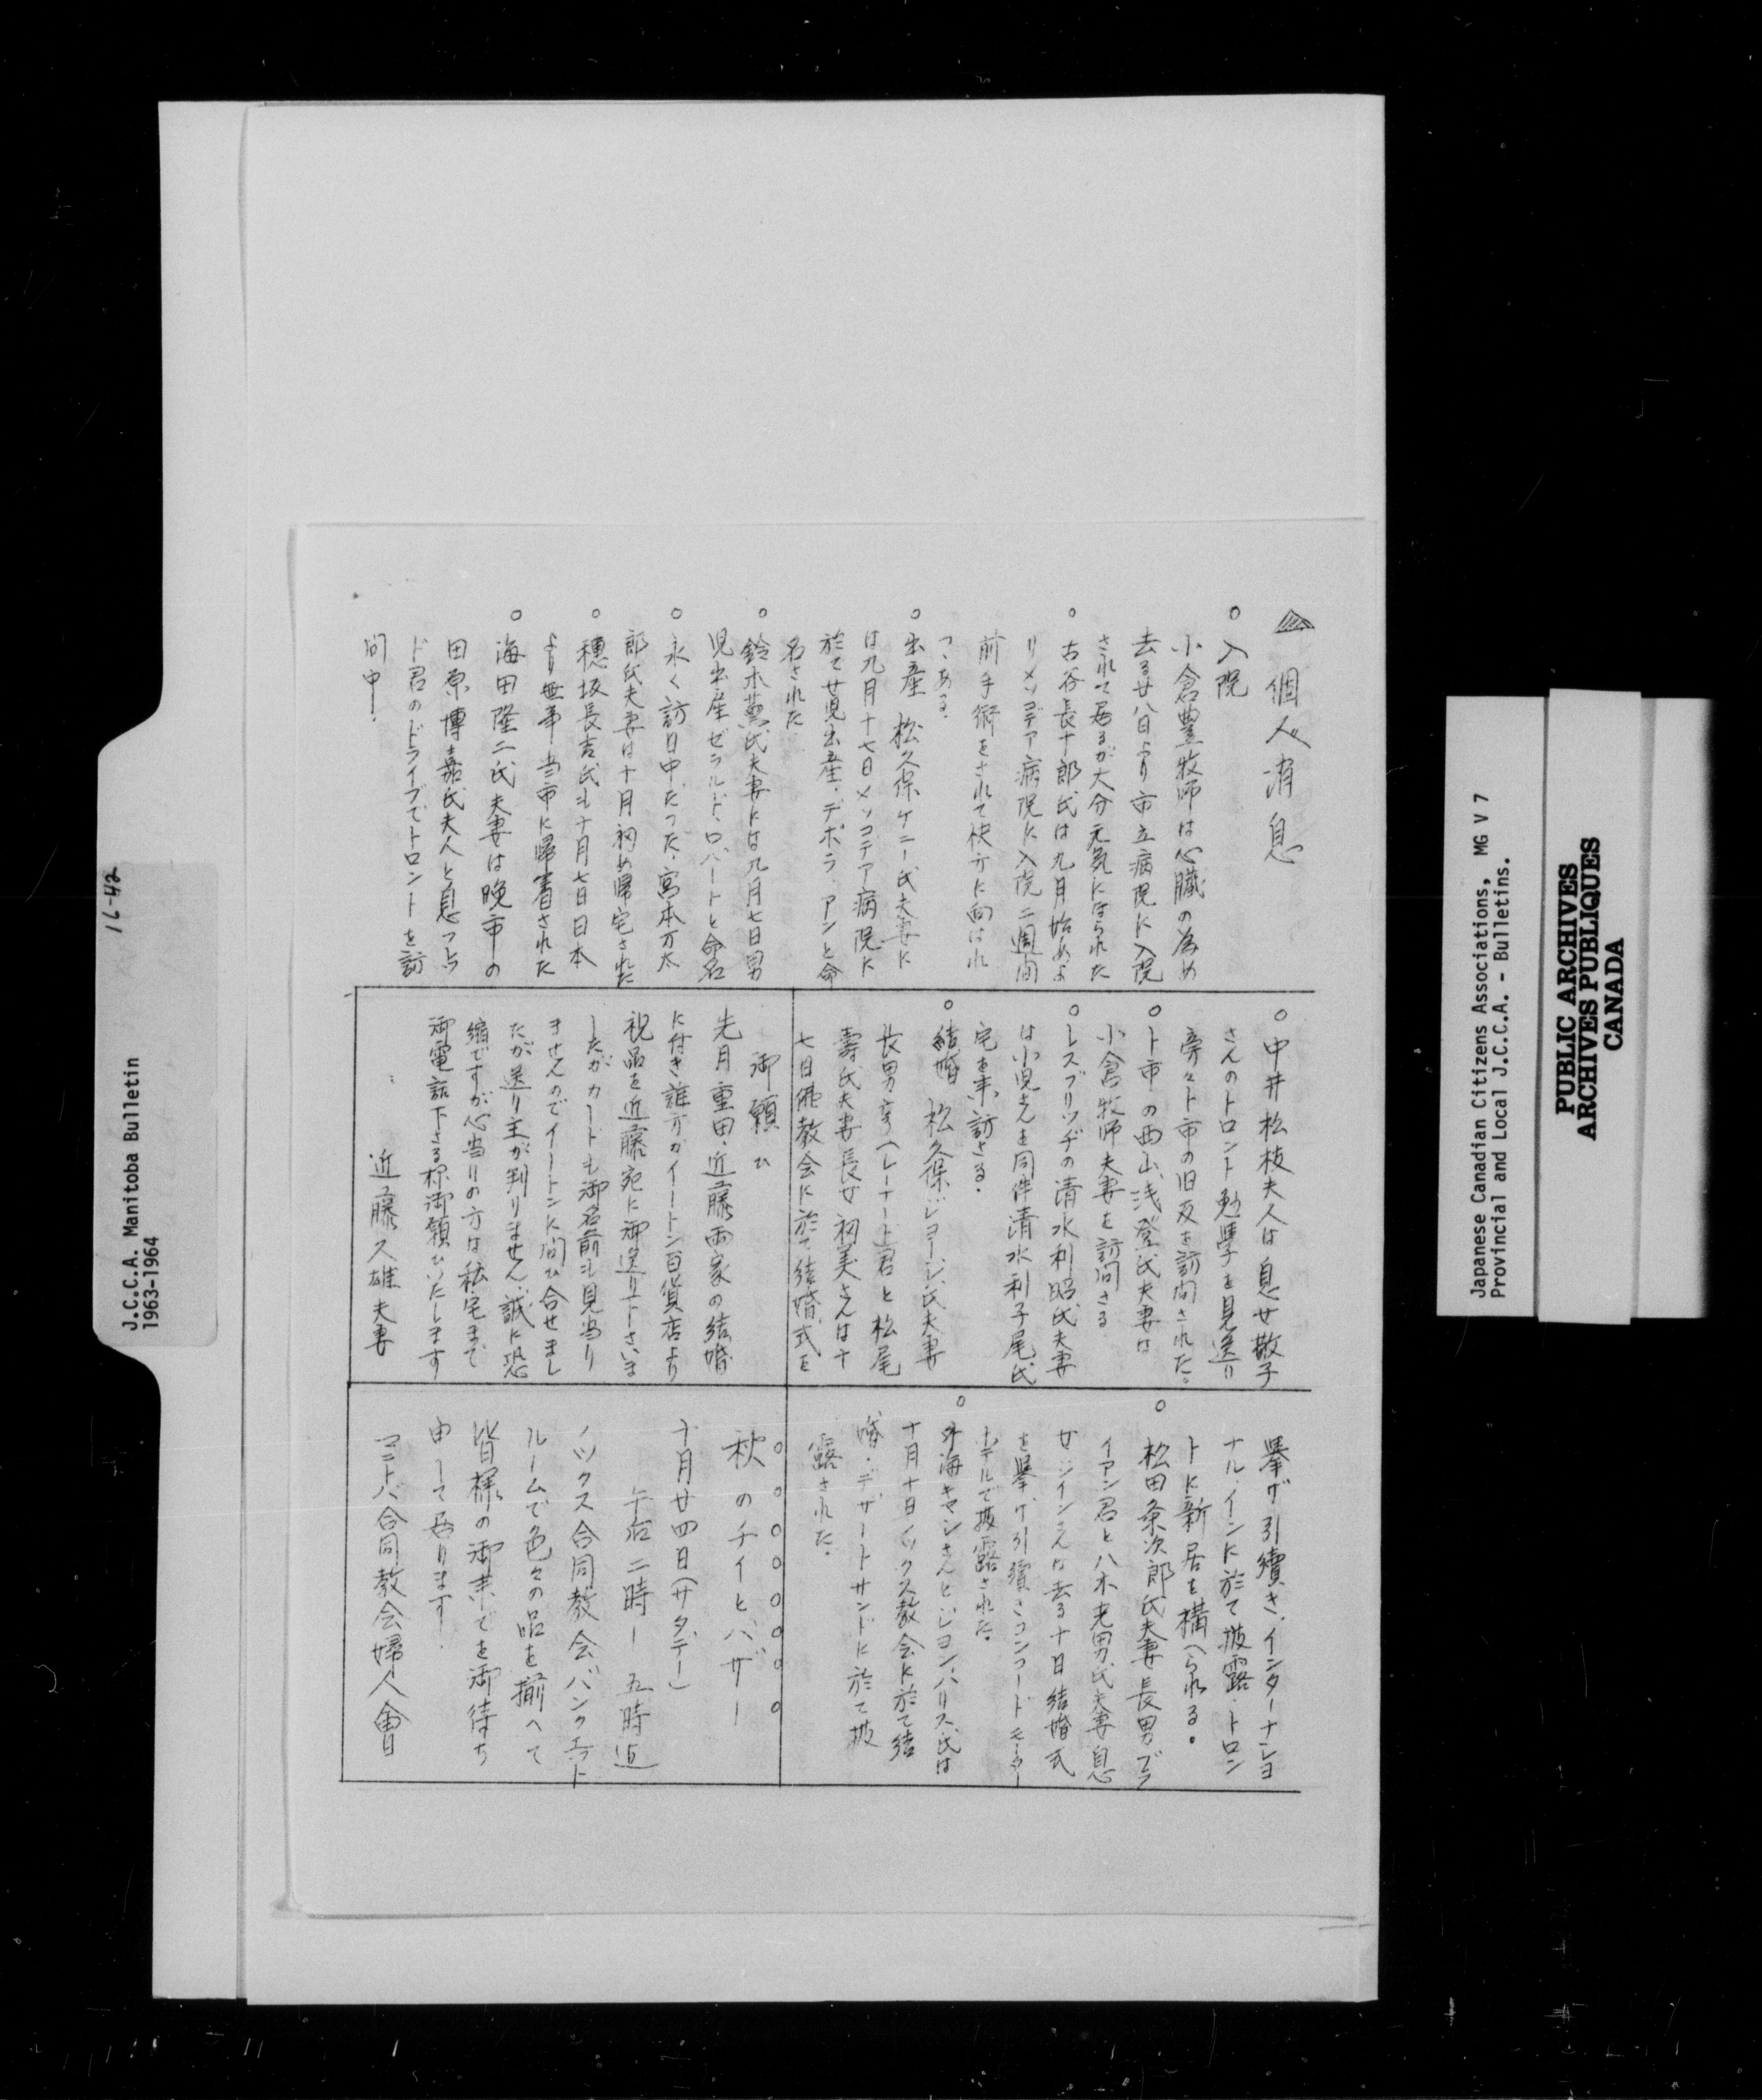 個人消息
○入院
小倉豊牧師は心臓の為め
去る廿八日より市立病院に入院
されて居るが大分元気になられた
○古谷長十郎氏は九月始めよ
りメソコデア病院に入院二週間
前手術をされて快方に向はれ
つゝある.
○出産 松久保ケニー氏夫妻に
は九月十七日メソコデア病院に
於て女児出産.デボラ.アンと命
名された
○鈴木薫氏夫妻には九月七日男
児出産ゼラルド.ロバートと命名
○永く訪日中だった.宮本万太
郎氏夫妻は十月初め帰宅された
○穂坂長吉氏も十月七日日本
より無事当市に帰着された
○海田隆二氏夫妻は晩市の
田原博嘉氏夫人と息
ド君のドライブでトロントを訪
問中.
○中井松枝夫人は息女敬子
さんのトロント勉學を見送り
旁々ト市の旧友を訪問された。
○ト市の西山浅登氏夫妻は
小倉牧師夫妻を訪問さる
○レスブリッヂの清水利昭氏夫妻
は小児さんを同伴清水利子尾氏
宅を来訪さる.
○結婚 松久保ジョージ氏夫妻
長男 (レーナート君と松尾
壽氏夫妻長女初美さんは十
七日佛教会に於て結婚式を
擧げ引續き.インターナショ
ナル.インに於て披露.トロン
トに新居を構へられる。
○松田条次郎氏夫妻長男ブラ
イアン君と八木老男氏夫妻息
女ジインさんは去る十日結婚式
を擧げ引續きコンコードモーター
ホテルで披露された。
○外海キヤシさんとジョン.ハリス氏は
十月十日ノックス教会に於て結
婚.デザートサンドに於て披
露された.
御願ひ
先月重田.近藤両家の結婚
に付き誰方かイートン百貨店より
祝品を近藤宛に御送り下さいま
したがカードも御名前も見当り
ませんのでイートンに問ひ合せまし
たが送り主が判りません.誠に恐
縮ですが心当りの方は私宅まで
御電話下さる様御願ひいたします
近藤久雄夫妻
○○○○○○○○
秋のテイとバザー
十月廿四日(サタデー)
午后二時ー五時迄
ノックス合同教会バンクエット
ルームで色々の品を揃へて
皆様の御来でを御待ち
申して居ります.
マニトバ合同教会婦人會
16-42
J.C.C.A. Manitoba Bulletin
1963-1964
Japanese Canadian Citizens Associations, MG V 7
Provincial and Local J.C.C.A. - Bulletins.
PUBLIC ARCHIVES
ARCHIVES PUBLIQUES
CANADA